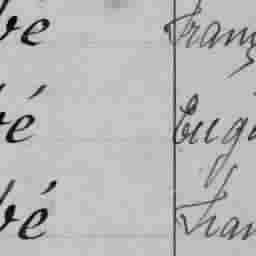 bé Franç
bé Eugè
bé Fran